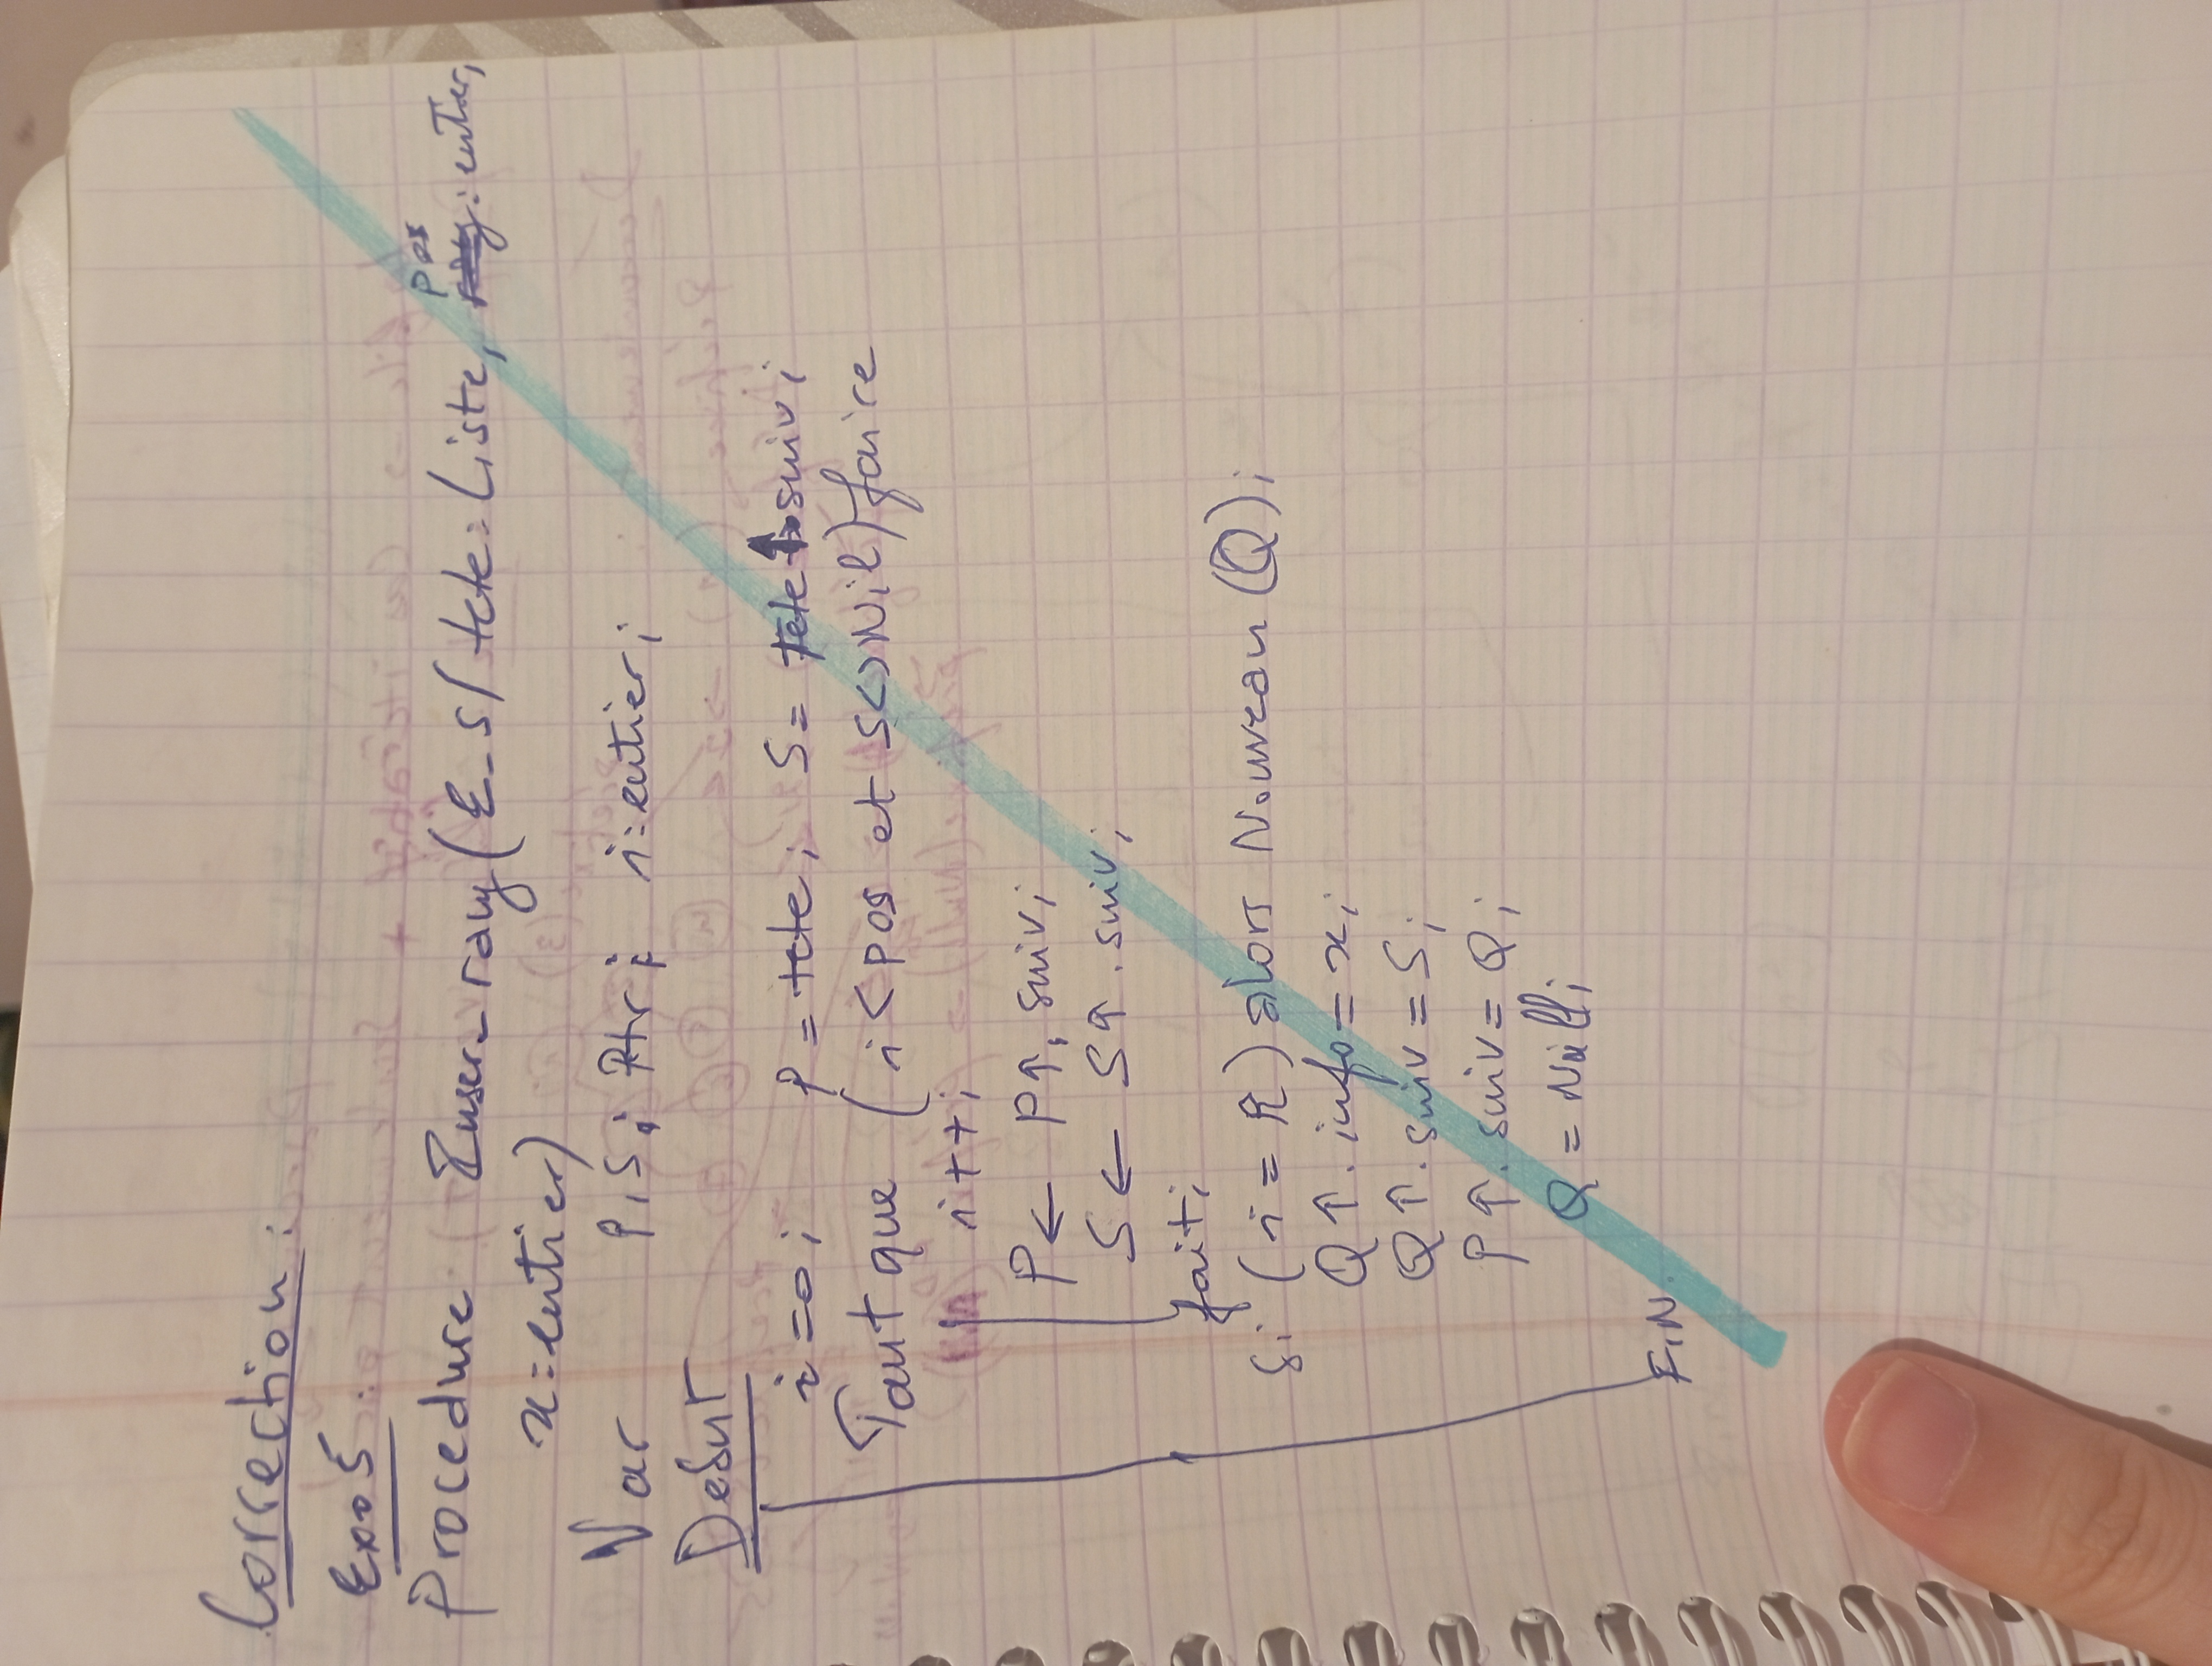 Correction :
Exo 5 :
Procedure Inser_rang (E_S/ tete : Liste, pos : entier,
x : entier)
Var P, S ; Ptr ; i : entier ;
Debut
i = 0 ; P = tete ; S = tete↑.suiv ;
Tant que (i < pos et S <> Nil) faire
i++ ;
P ← P↑. suiv ;
S ← S↑. suiv ;
fait ;
Si (i = R) alors Nouveau (Q) ;
Q↑. info = x ;
Q↑. suiv = S ;
P↑. suiv = Q ;
Q = Nill ;
FIN.